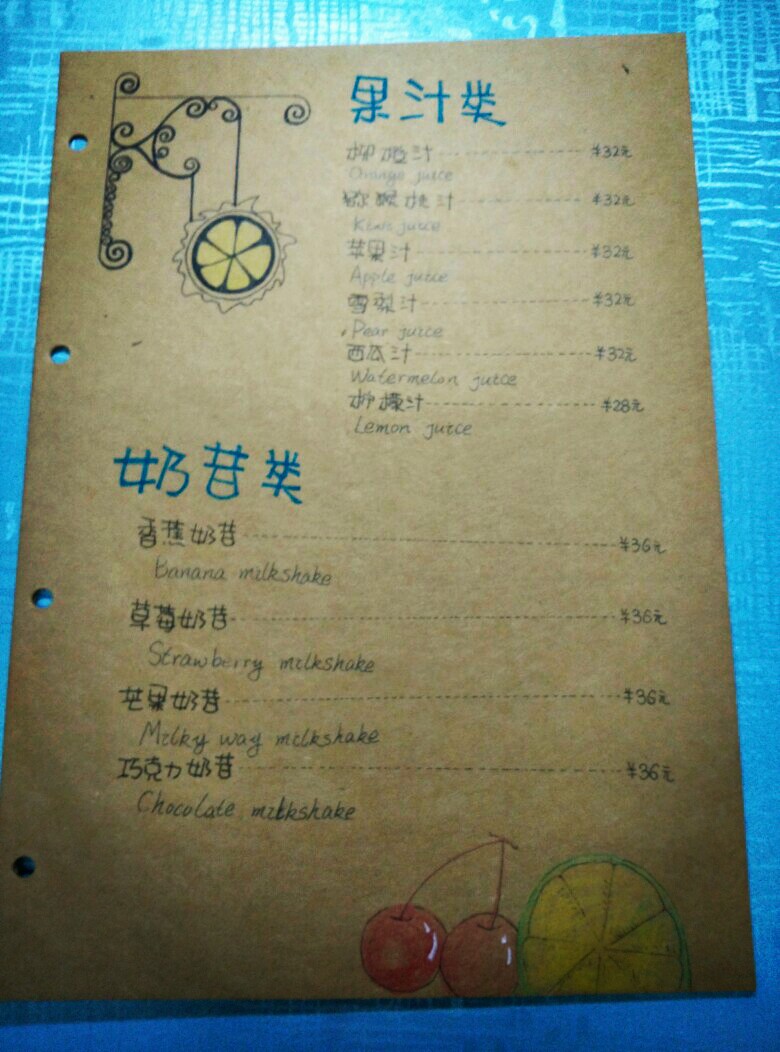 果汁类
柳橙汁 ¥32元
Orange juice
猕猴桃汁 ¥32元
Kiwi juice
苹果汁 ¥32元
Apple juice
雪梨汁 ¥32元
Pear juice
西瓜汁 ¥32元
Watermelon juice
柠檬汁 ¥28元
Lemon juice
奶昔类
香蕉奶昔 ¥36元
Banana milkshake
草莓奶昔 ¥36元
Strawberry milkshake
芒果奶昔 ¥36元
Milky way milkshake
巧克力奶昔 ¥36元
Chocolate milkshake